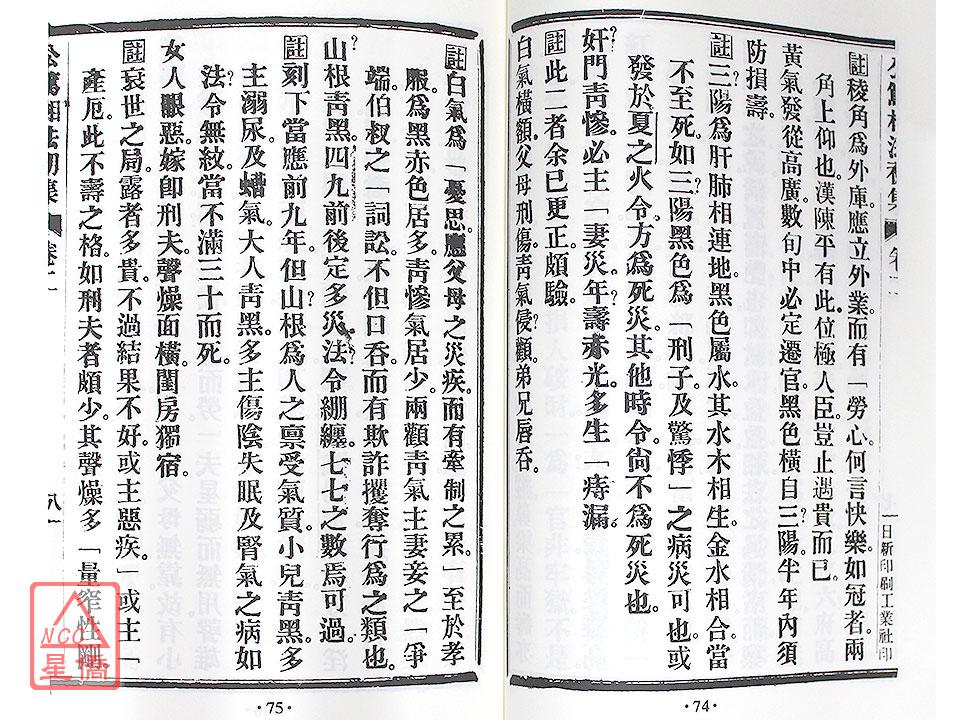 日新印刷工業社印
註稜角爲外庫應立外業。而有「勞心。何言快樂。如冠者。兩
角上仰也。漢陳平有此。位極人臣。豈止遇貴而已。
黃氣發從高廣。數旬中必定遷官。黑色橫自三陽。半年內須
防損壽。
註三陽爲肝肺相連地。黑色屬水。其水木相生。金水相合。當
不至死。如三陽黑色。爲「刑子。及驚悸」之病災可也。或
發於夏之火令。方爲死災。其他時令。尙不爲死災也。
奸門靑慘。必主「妻災。年壽赤光。多生「痔漏。
註此二者。余已更正。頗驗。
白氣橫額。父母刑傷。靑氣侵顴。弟兄唇吞。
・74・
註白氣爲「憂思。應父母之災疾。而有牽制之累」至於孝
服。爲黑赤色居多。靑慘氣居少。兩顴靑氣。主妻妾之「爭
端。伯叔之「詞訟。不但口吞。而有欺詐攫奪行爲之類也。
山根靑黑。四九前後定多災。法令繃纏。七七之數焉可過。
註刻下當應前九年。但山根爲人之禀受氣質。小兒靑黑。多
主溺尿。及蟯氣。大人靑黑。多主傷陰失眠。及腎氣之病。如
法令無紋。當不滿三十而死。
女人眼惡。嫁卽刑夫。聲燥面橫。閨房獨宿。
註衰世之局。露者多貴。不過結果不好。或主惡疾」或主「
產厄。此不壽之格。如刑夫者頗少。其聲燥多「量窄性剛
卷二
八一
・75・
NCC
星僑